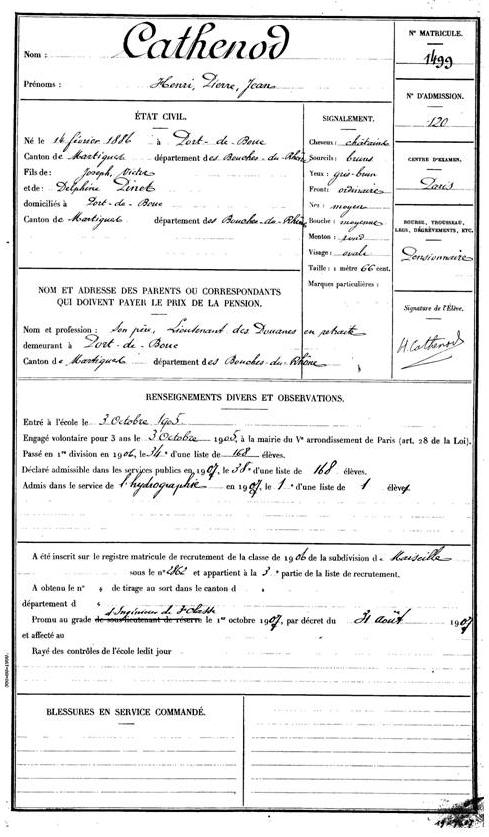 Nom : Cathenod
Prénoms : Henri, Pierre, Jean
N° MATRICULE.
1499
N° D'ADMISSION.
120
CENTRE D'EXAMEN.
Paris
BOURSE, TROUSSEAU,
LEGS, DÉGRÈVEMENTS, ETC.
Pensionnaire
Signature de l'Élève.
H. Cathenod
ÉTAT CIVIL.
Né le 14 février 1886 à Port-de-Bouc
Canton de Martigues département des Bouches-du-Rhône
Fils de : Joseph, Victor
et de : Delphine Pinet
domiciliés à Port-de-Bouc
Canton de Martigues département des Bouches-du-Rhône
SIGNALEMENT.
Cheveux : châtains
Sourcils : bruns
Yeux : gris-brun
Front : ordinaire
Nez : moyen
Bouche : moyenne
Menton : rond
Visage : ovale
Taille : 1 mètre 66 cent.
Marques particulières :
NOM ET ADRESSE DES PARENTS OU CORRESPONDANTS
QUI DOIVENT PAYER LE PRIX DE LA PENSION.
Nom et profession : Son père, Lieutenant des Douanes en retraite
demeurant à Port-de-Bouc
Canton de Martigues département des Bouches-du-Rhône
RENSEIGNEMENTS DIVERS ET OBSERVATIONS.
Entré à l'école le 3 Octobre 1905
Engagé volontaire pour 3 ans le 3 Octobre 1905, à la mairie du Ve arrondissement de Paris (art. 28 de la Loi).
Passé en 1re division en 1906, le 34e d'une liste de 168 élèves.
Déclaré admissible dans les services publics en 1907, le 38e d'une liste de 168 élèves.
Admis dans le service de l'hydrographie en 1907, le 1er d'une liste de 1 élève
A été inscrit sur le registre matricule de recrutement de la classe de 1906 de la subdivision de Marseille
sous le n° 2862 et appartient à la 3e partie de la liste de recrutement.
A obtenu le n° de tirage au sort dans le canton d
département d
d'Ingénieur de 3e Classe
Promu au grade de sous-lieutenant de réserve le 1er octobre 1907, par décret du 31 août 1907
et affecté au
Rayé des contrôles de l'école ledit jour
BLESSURES EN SERVICE COMMANDÉ.